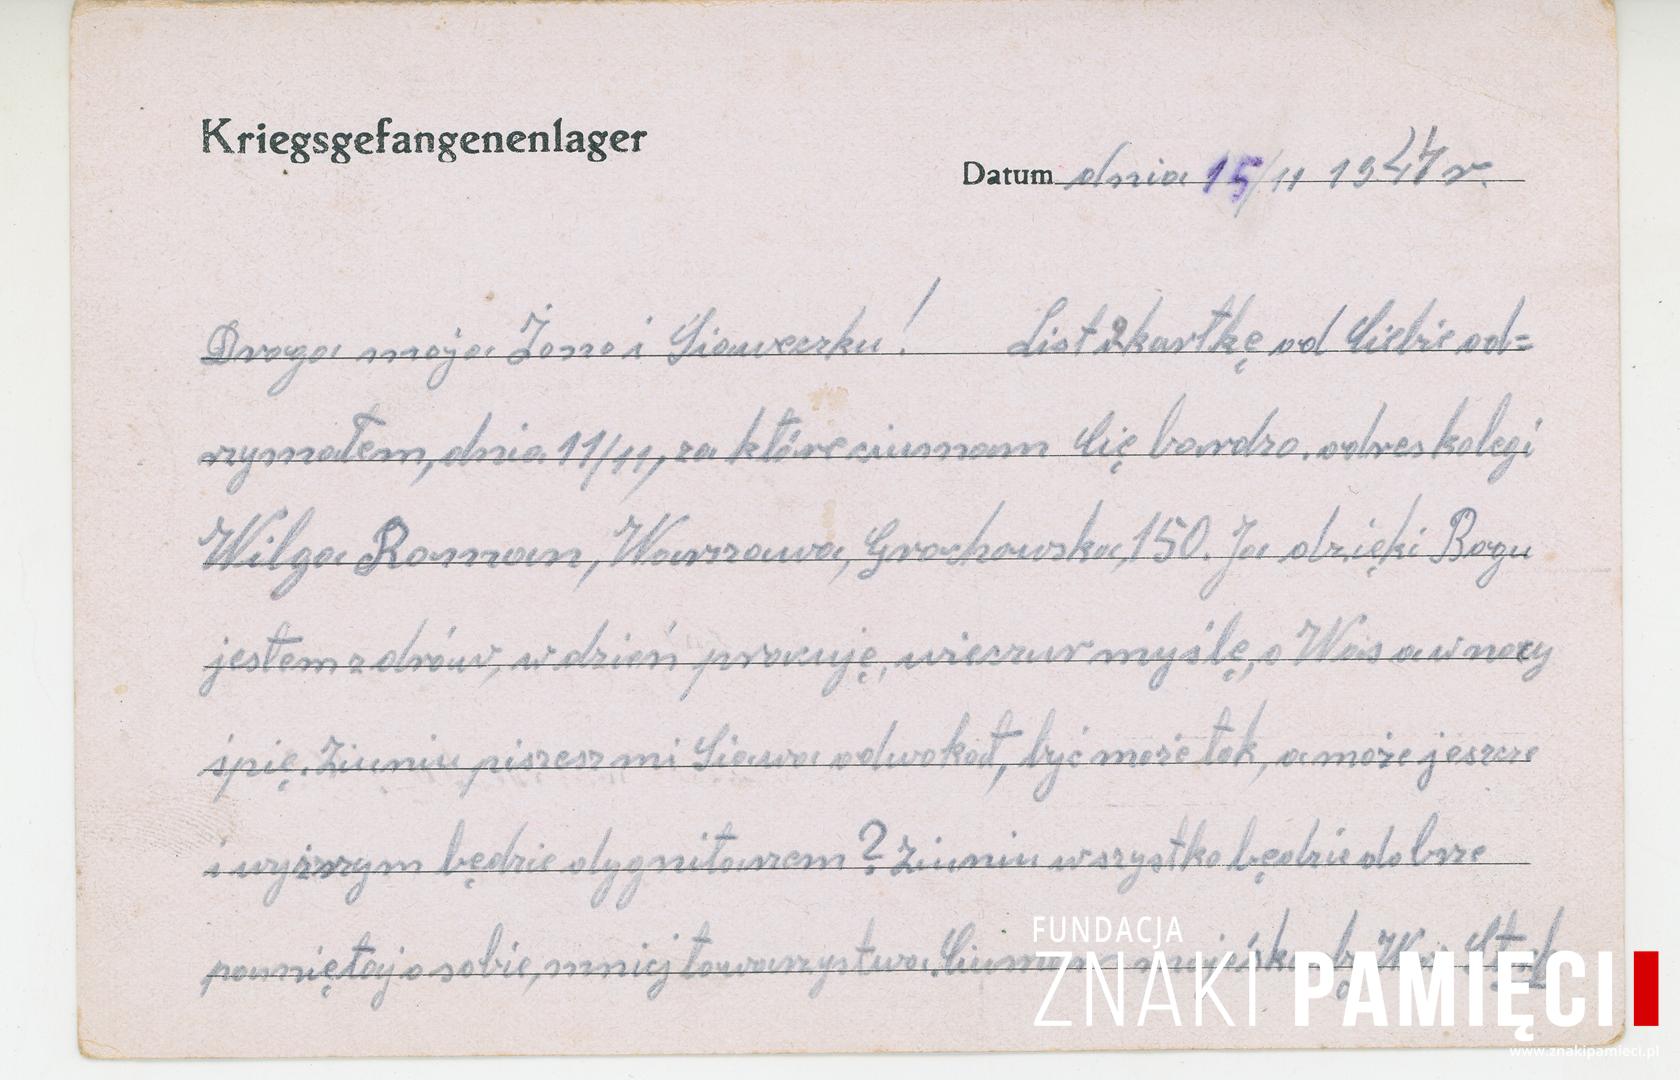 Kriegsgefangenenlager
Datum dnia 15/11 1944 r.
Droga moja Żono i Siaweczku! List i kartkę od Ciebie od=
rzymałem, dnia 11/11, za które ciumam Cię bardzo. adres kolegi
Wilga Roman, Warszawa, Grochowska, 150. Ja dzięki Bogu
jestem zdrów, w dzień pracuję, wieczur myślę, o Was a w nocy
śpię. Ziuniu piszesz mi Siawa adwokat, być może tak, a może jeszcze
i wyższym będzie dygnitarzem? Ziuniu wszystko będzie dobrze
pamiętaj o sobie, mniej towarzystwa. Ciumam
FUNDACJA
ZNAKI PAMIĘCI
www.znakipamieci.pl